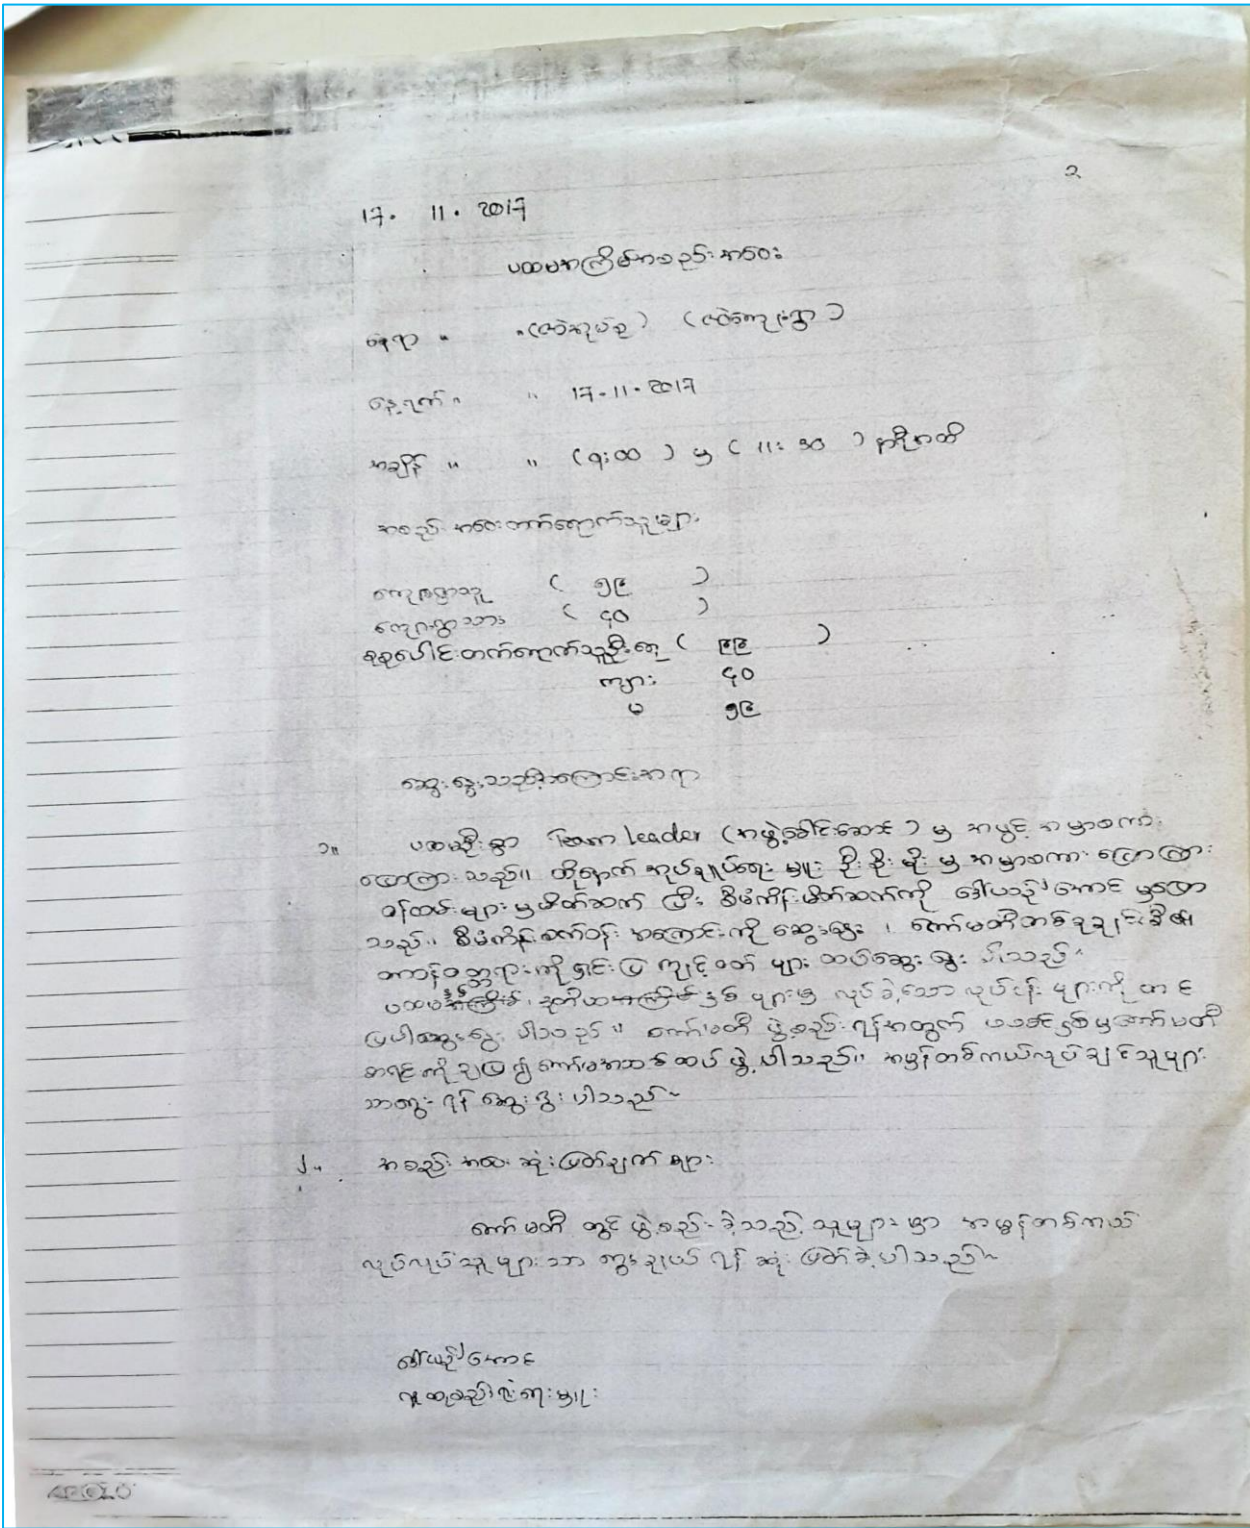 ၃
17. 11. 2017
ပထမအကြိမ်အစည်းအဝေး
နေရာ " "(ဇလဲအုပ်စု) (ဇလဲကျေးရွာ)
နေ့ရက် " " 17-11-2017
အချိန် " " (၇:၀၀) မှ (11:30) နာရီအထိ
အစည်းအဝေးတက်ရောက်သူများ
ကျေးရွာသူ (၅၉)
ကျေးရွာသား (၄၀)
စုစုပေါင်းတက်ရောက်သူဦးရေ (၉၉)
ကျား ၄၀
မ ၅၉
ဆွေးနွေးသည့်အကြောင်းအရာ
၁။ ပထမဦးစွာ Team leader (အဖွဲ့ခေါင်းဆောင်) မှ အဖွင့် အမှာစကား
ပြောကြားသည်။ ထို့နောက် အုပ်ချုပ်ရေးမှူး ဦးစိုးမိုး မှ အမှာစကား ပြောကြား
ဝန်ထမ်းများမှမိတ်ဆက် ပြီး စီမံကိန်းမိတ်ဆက်ကို အောင် မှပြော
သည်။ စီမံကိန်း အကြောင်းကို ဆွေးနွေး ၊ ကော်မတီတစ်ခုချင်းစီ၏
တာဝန်ဝတ္တရားကိုရှင်းပြ ကျင့်ဝတ် များ ထပ်ဆွေးနွေး ပါသည်
ပထမနှစ်၊ ဒုတိယနှစ် များမှ လုပ်ခဲ့သော လုပ်ငန်း များကို တင်
ပြပါဆွေးနွေး ပါသည်။ ကော်မတီ ဖွဲ့စည်းရန်အတွက် ပထမနှစ်မှကော်မတီ
စာရင်းကိုချပြ၍ ကော်မအသစ်ထပ်ဖွဲ့ပါသည်။ အမှန်တစ်ကယ်လုပ်ချင်သူများ
သာရွေးရန် ဆွေးနွေးပါသည်~
၂။ အစည်းအဝေးဆုံးဖြတ်ချက်များ
ကော်မတီ တွင် ဖွဲ့စည်းခဲ့သည့် သူများ မှာ အမှန်တစ်ကယ်
လုပ်လုပ်သူများသာ ရွေးချယ်ရန် ဆုံးဖြတ်ခဲ့ပါသည်~
အောင်
လူထုစည်းရုံးရေးမှူး
APOLO